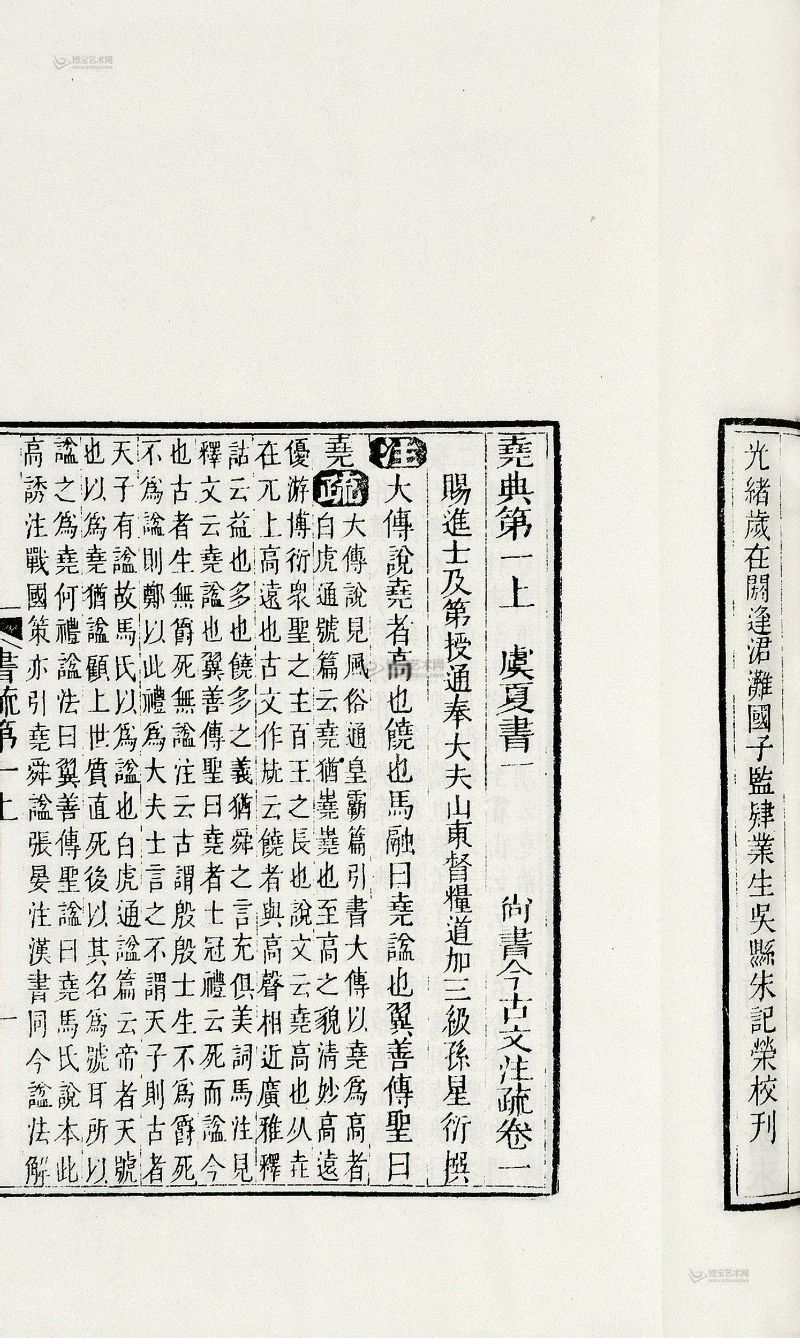 光緒歲在閼逢涒灘國子監肄業生吳縣朱記榮校刊
堯典第一上 虞夏書一 尚書今古文注疏卷一
賜進士及第授通奉大夫山東督糧道加三級孫星衍撰
注大傳說堯者高也饒也馬融曰堯諡也翼善傳聖曰
堯疏大傳說見風俗通皇霸篇引書大傳以堯爲高者
白虎通號篇云堯猶嶤嶤也至高之貌清妙高遠
優游博衍衆聖之主百王之長也說文云堯高也从垚
在兀上高遠也古文作㚁云饒者與高聲相近廣雅釋
詁云益也多也饒多之義猶舜之言充俱美詞馬注見
釋文云堯諡也翼善傳聖曰堯者士冠禮云死而諡今
也古者生無爵死無諡注云古謂殷殷士生不爲爵死
不爲諡則鄭以此禮爲大夫士言之不謂天子則古者
天子有諡故馬氏以爲諡也白虎通諡篇云帝者天號
也以爲堯猶諡顧上世質直死後以其名爲號耳所以
諡之爲堯何禮諡法曰翼善傳聖諡曰堯馬氏說本此
高誘注戰國策亦引堯舜諡張晏注漢書同今諡法解
書疏第一上 一
博宝艺术网
博宝艺术网